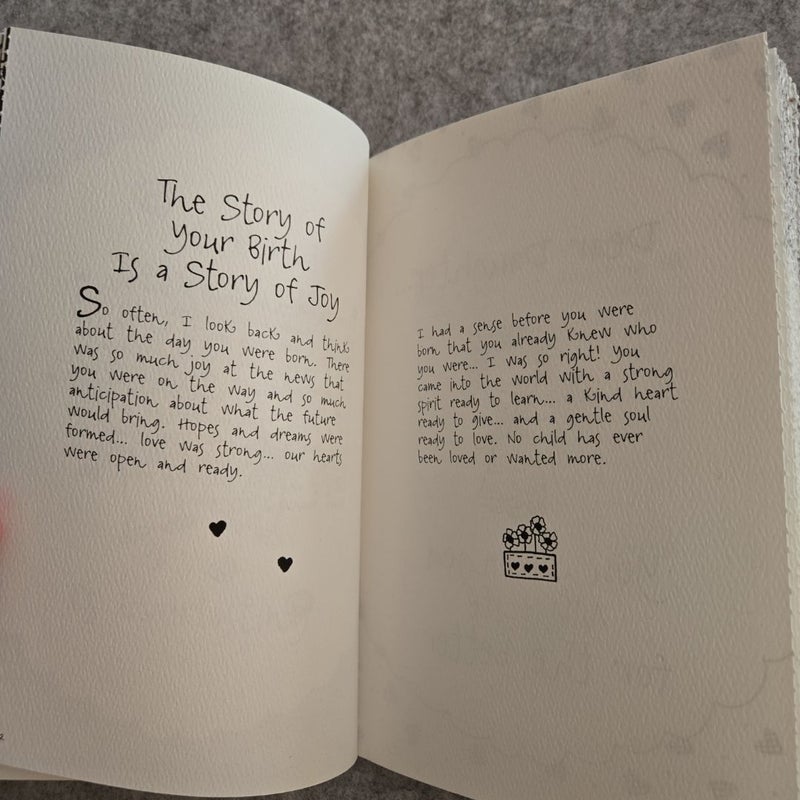 The Story of
Your Birth
Is a Story of Joy
So often, I look back and think
about the day you were born. There
was so much joy at the news that
you were on the way and so much
anticipation about what the future
would bring. Hopes and dreams were
formed... love was strong... our hearts
were open and ready.
2
I had a sense before you were
born that you already knew who
you were... I was so right! You
came into the world with a strong
spirit ready to learn... a kind heart
ready to give... and a gentle soul
ready to love. No child has ever
been loved or wanted more.